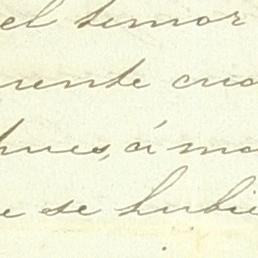 el temor
mente cua
pues, á ma
e se hubie